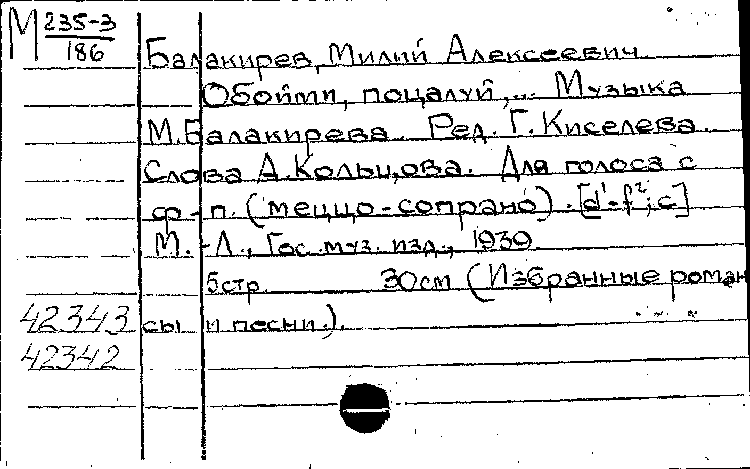 М 235-3
186
Балакирев, Милий Алексеевич
Обойми, поцалуй,... Музыка
М.Балакирева. Ред. Г. Киселева.
Слова А.Кольцова. Для голоса с
ф-п. (меццо-сопрано). [d¹-f²; c]
М.-Л., Гос. муз. изд., 1939.
5стр. 30см (Избранные роман
42343 сы и песни.).
42342